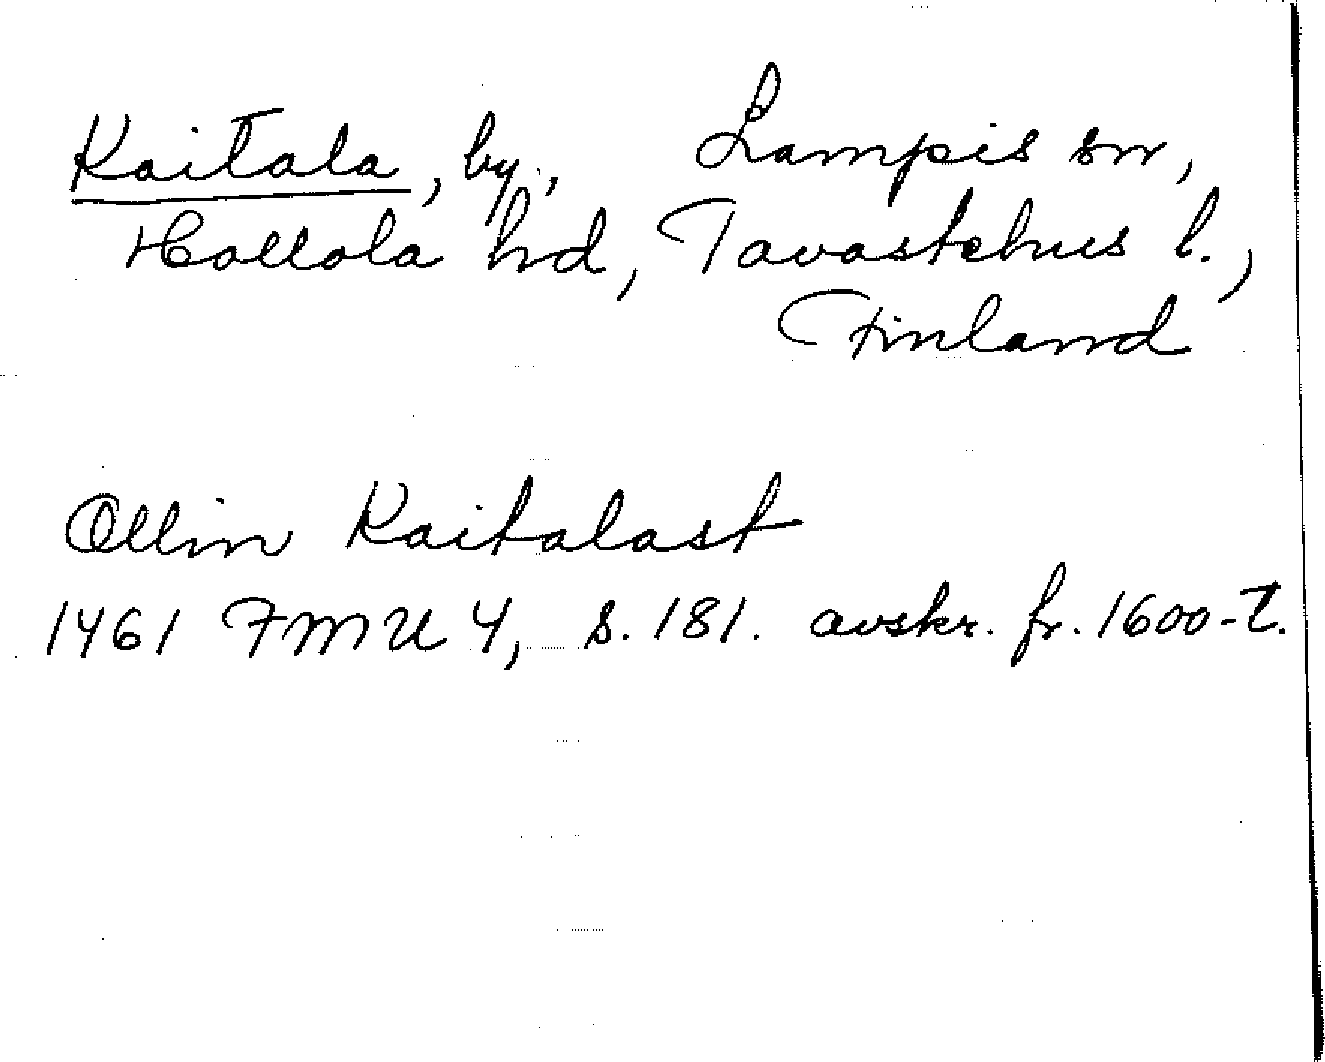 Kaitala, by, Lampis sn,
Hollola hd, Tavastehus l.,
Finland
Ollin Kaitalast
1461 FMU 4, s. 181. avskr. fr. 1600-t.